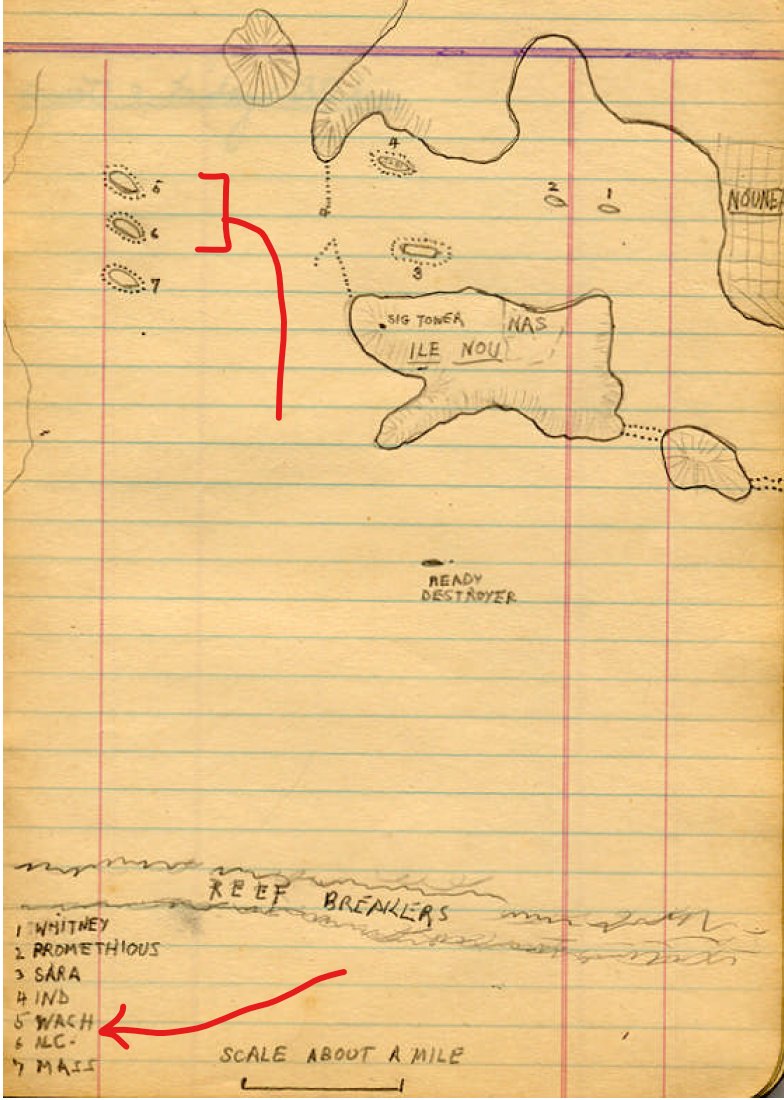 4
5
2
1
NOUNE
6
3
7
SIG TOWER
NAS
ILE NOU
READY
DESTROYER
REEF BREAKERS
1 WHITNEY
2 PROMETHIOUS
3 SARA
4 IND
5 WASH
6 N.C.
7 MASS
SCALE ABOUT A MILE